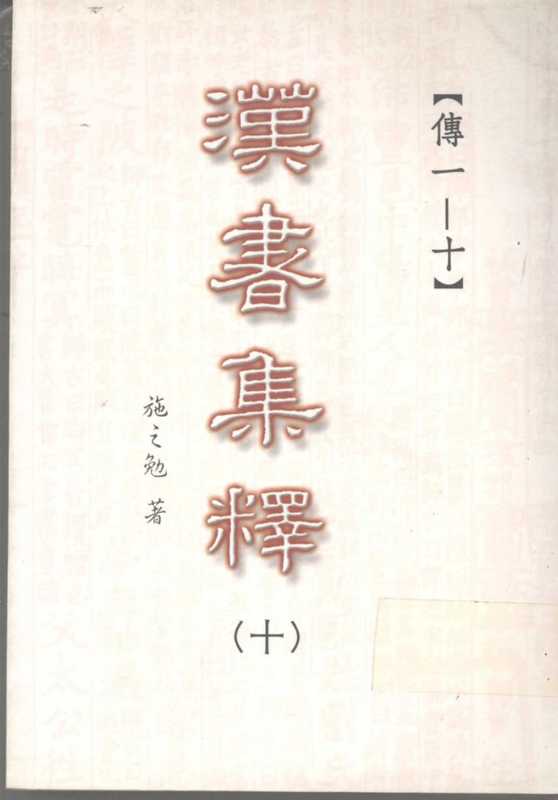 【傳一—十】
漢書集釋
(十)
施之勉 著